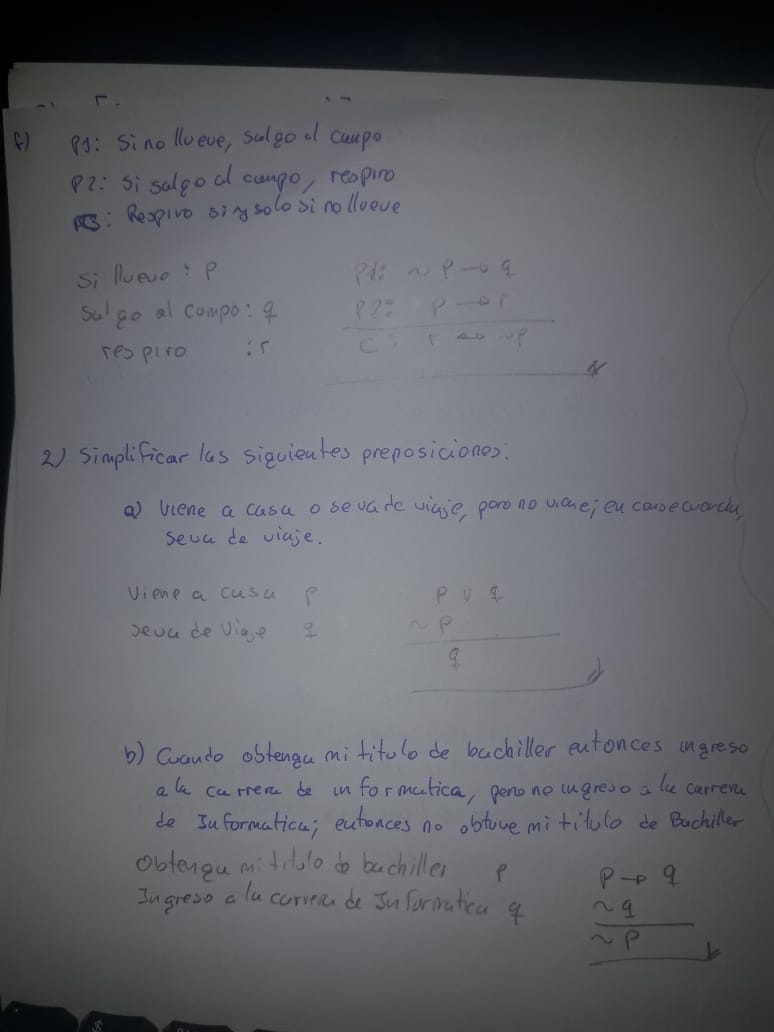 f) P1: Si no llueve, salgo al campo
P2: Si salgo al campo, respiro
P3: Respiro si y solo si no llueve
Si llueve : p
P1: ~ p → q
Salgo al campo: q
P2: p → r
respiro : r
C: r ↔ ~p
2) Simplificar las siguientes preposiciones:
a) Viene a casa o se va de viaje, pero no viene; en consecuencia,
se va de viaje.
Viene a casa p
p v q
se va de viaje q
~ p
q
b) Cuando obtenga mi titulo de bachiller entonces ingreso
a la carrera de informatica, pero no ingreso a la carrera
de Informatica; entonces no obtuve mi titulo de Bachiller
Obtenga mi titulo de bachiller p
p → q
Ingreso a la carrera de Informatica q
~q
~p